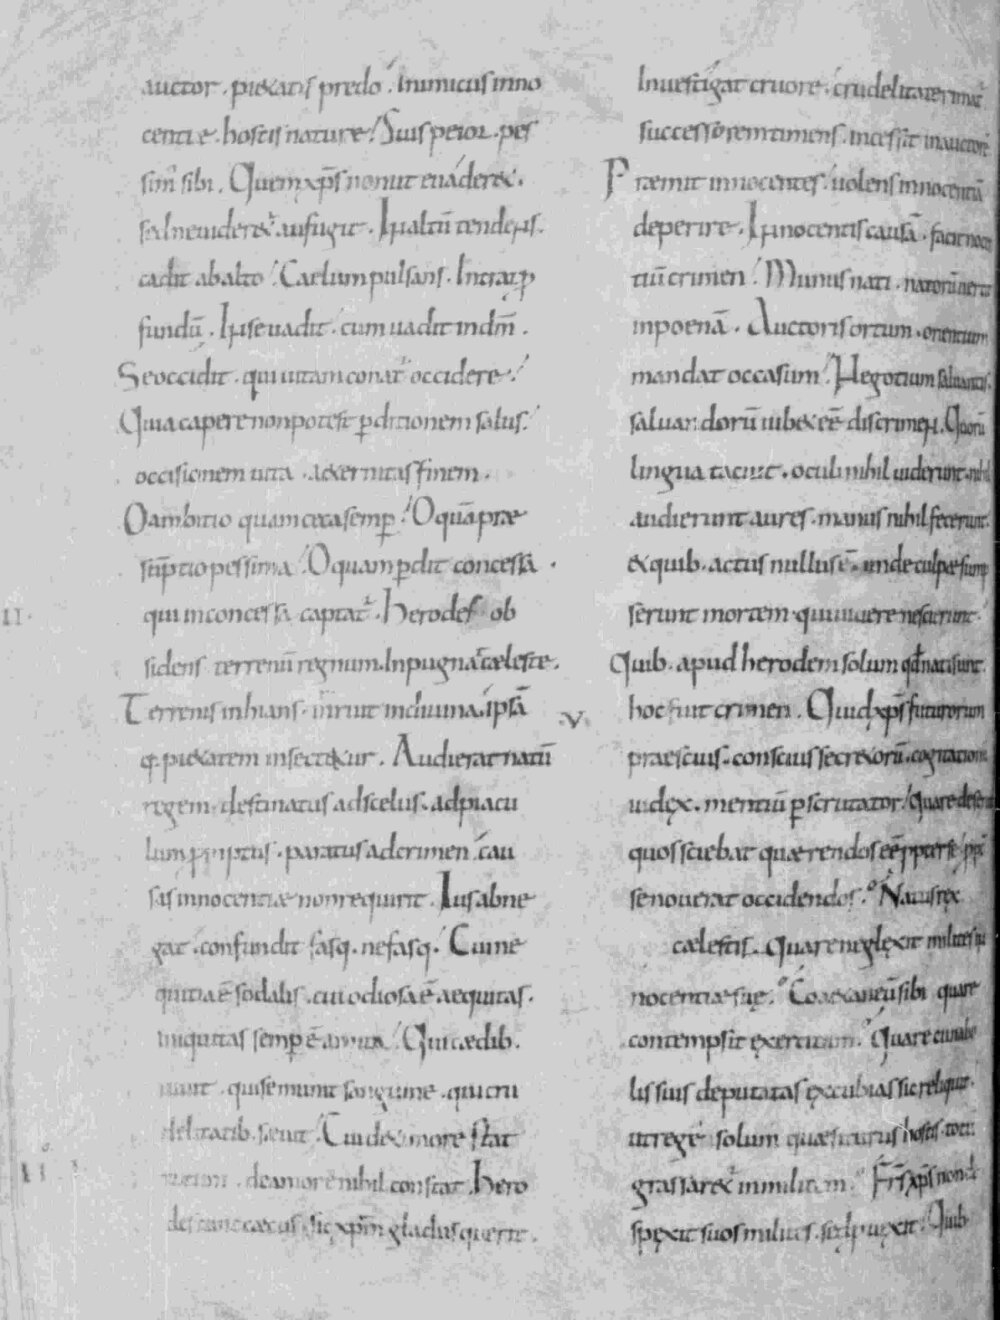 auctor . pietatis predo . Inimicus inno
centie . hostis nature / Suis peior . pes
sim' sibi . Quem xp̄s non ut euaderet .
sed ne uideret' aufugit . In altū tendens .
cadit ab alto / Caelum pulsans . Intrat p
fundū . Ipse uadit . cum uadit in dm̄ .
Se occidit . qui uitam conat' occidere /
Quia capere non potest pditionem salus /
occisionem uita . aeternitas finem .
O ambitio quam ceca semp / O quā prae
sūptio pessima / O quam pdit concessa .
II . qui inconcessa captat' . herodes ob
sidens terrenū regnum . Inpugnat cæleste .
Terrenis inhians . inruit in diuina . ipsā
q. pietatem insectetur . Audierat natū
regem . destinatus ad scelus . ad piacu
lum pmptus . paratus ad crimen . cau
sas innocentiæ non requirit . Ius abne
gat . confundit fasq. nefasq. Cui ne
quitia ē sodalis . cui odiosa ē aequitas .
iniquitas semp ē amica / Qui cædib.
uiuit . qui semunit sanguine . qui cru
delitatib. sæuit / Cui de more stat
de amore nihil constat . hero
des tunc cæcus . sic xpm̄ gladiis querit .
Inuestigat cruore . crudelitate rimat'
successorem timens . incessit in auctorē
Præmit innocentes . uolens innocentiā
deperire . Innocentis causā . facit nocen
tiū crimen / Munus nati . natorū uertit
in poenā . Auctoris ortum . orientium
mandat occasum / Negotium saluantis .
saluandorū iubet eē discrimen . Quorū
lingua tacuit . oculi nihil uiderunt . nihil
audierunt aures . manus nihil fecerunt .
ex quib. actus nullus ē . unde culpæ sump
serunt mortem . qui uiuere nescierunt
Quib. apud herodem solum qd nati sunt
V . hoc fuit crimen . Quid xp̄s futurorum
praescius . conscius secretorū . cogitationū
iudex . mentiū pscrutator / quare deseruit
quos sciebat quærendos eē ppter se / ppt
se nouerat occidendos . Natus rex
cælestis . quare neglexit milites in
nocentiæ suę . Coaetaneū sibi quare
contempsit exercitum . Quare cunabu
lis suis deputatas excubias sic reliquit .
ut regē solum quæsiturus hostis . toti'
grassaret' in militem . Frs̄ xp̄s non de
spexit suos milites . sed puexit . Quib.